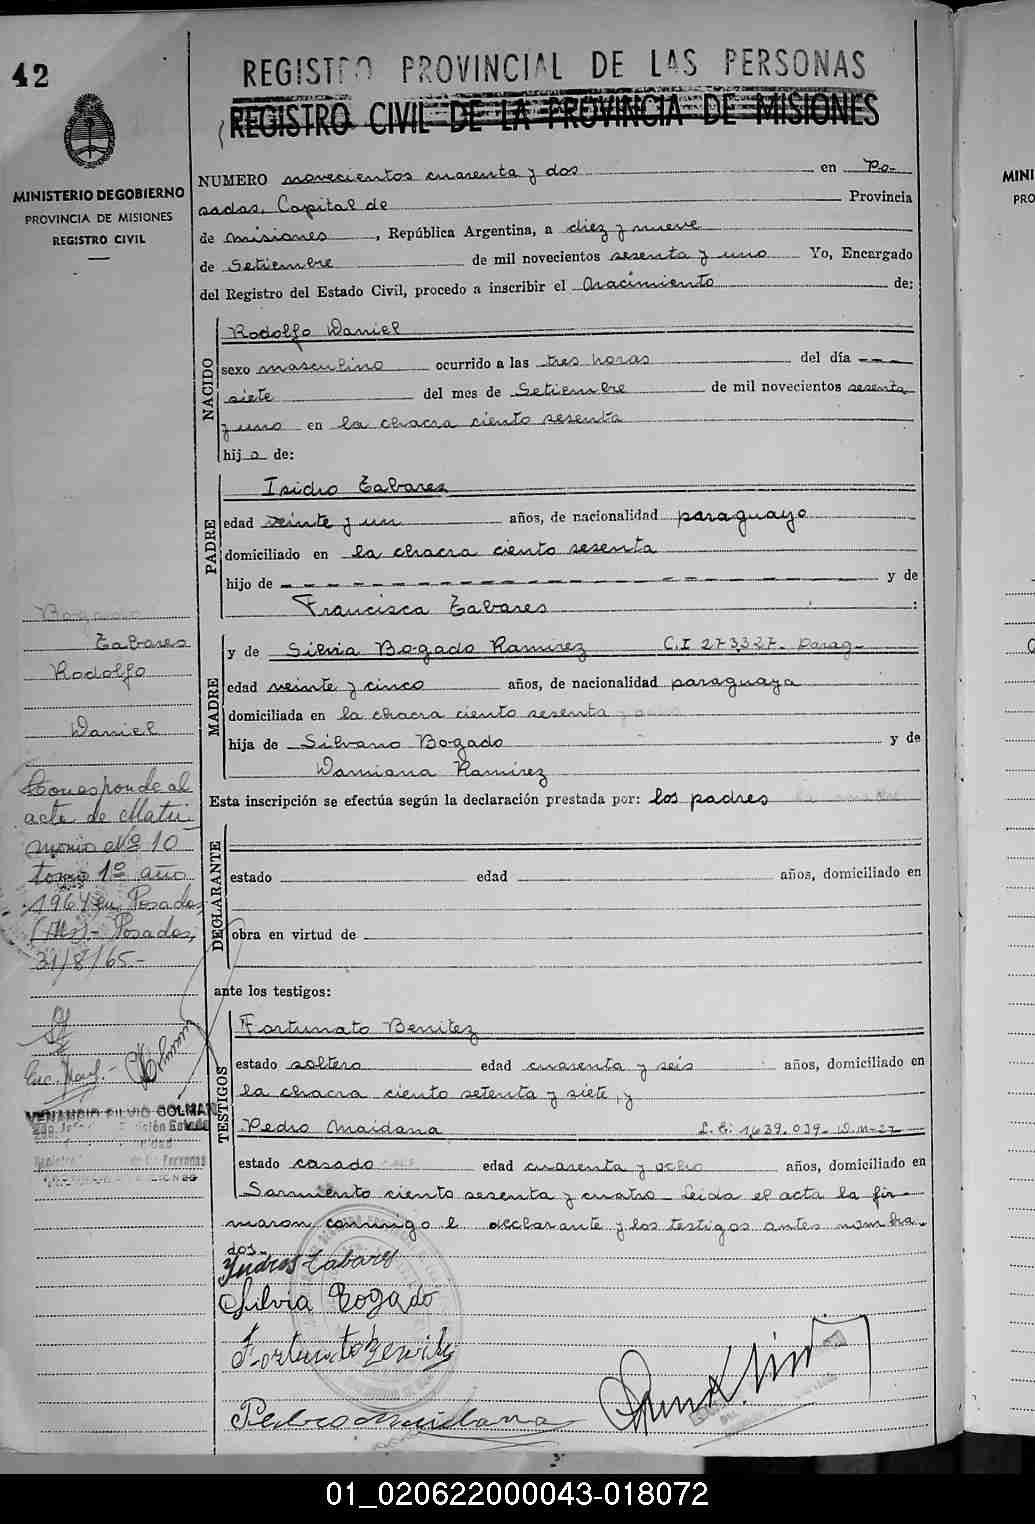 42
REGISTRO PROVINCIAL DE LAS PERSONAS
REGISTRO CIVIL DE LA PROVINCIA DE MISIONES
MINISTERIO DE GOBIERNO
PROVINCIA DE MISIONES
REGISTRO CIVIL
NUMERO novecientos cuarenta y dos en Po-
sadas, Capital de Provincia
de Misiones, República Argentina, a diez y nueve
de Setiembre de mil novecientos sesenta y uno Yo, Encargado
del Registro del Estado Civil, procedo a inscribir el nacimiento de:
NACIDO
Rodolfo Daniel
sexo masculino ocurrido a las tres horas del día ---
siete del mes de Setiembre de mil novecientos sesenta
y uno en la chacra ciento sesenta
hijo de:
PADRE
Isidro Tabares
edad veinte y un años, de nacionalidad paraguayo
domiciliado en la chacra ciento sesenta
hijo de - - - - - - - - - - y de
Francisca Tabares :
MADRE
y de Silvia Bogado Ramirez C.I 273327- parag-
edad veinte y cinco años, de nacionalidad paraguaya
domiciliada en la chacra ciento sesenta
hija de Silvano Bogado y de
Damiana Ramirez
Esta inscripción se efectúa según la declaración prestada por: los padres
DECLARANTE
estado edad años, domiciliado en
obra en virtud de
ante los testigos:
TESTIGOS
Fortunato Benitez
estado soltero edad cuarenta y seis años, domiciliado en
la chacra ciento setenta y siete, y
Pedro Maidana 1.639.039- D.M-27
estado casado edad cuarenta y ocho años, domiciliado en
Sarmiento ciento sesenta y cuatro- Leida el acta la fir-
maron conmigo el declarante y los testigos antes nombra-
dos-
Tabares
Silvia Bogado
Fortunato Benitez
Pedro Maidana
Bogado
Tabares
Rodolfo
Daniel
Corresponde al
acta de Matri-
monio Nº 10
tomo 1º año
1964 en Posadas
(Ms)- Posadas,
31/8/65.-
VENANCIO SILVIO COLMAN
MINI
PRO
01_020622000043-018072